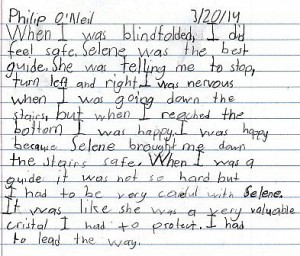 Philip O'Neil 3/20/14
When I was blindfolded, I did
feel safe. Selene was the best
guide. She was telling me to stop,
turn left and right. I was nervous
when I was going down the
stairs, but when I reached the
bottom I was happy. I was happy
because Selene brought me down
the stairs safe. When I was a
guide it was not so hard but
I had to be very careful with Selene.
It was like she was a very valuable
cristal I had to protect. I had
to lead the way.